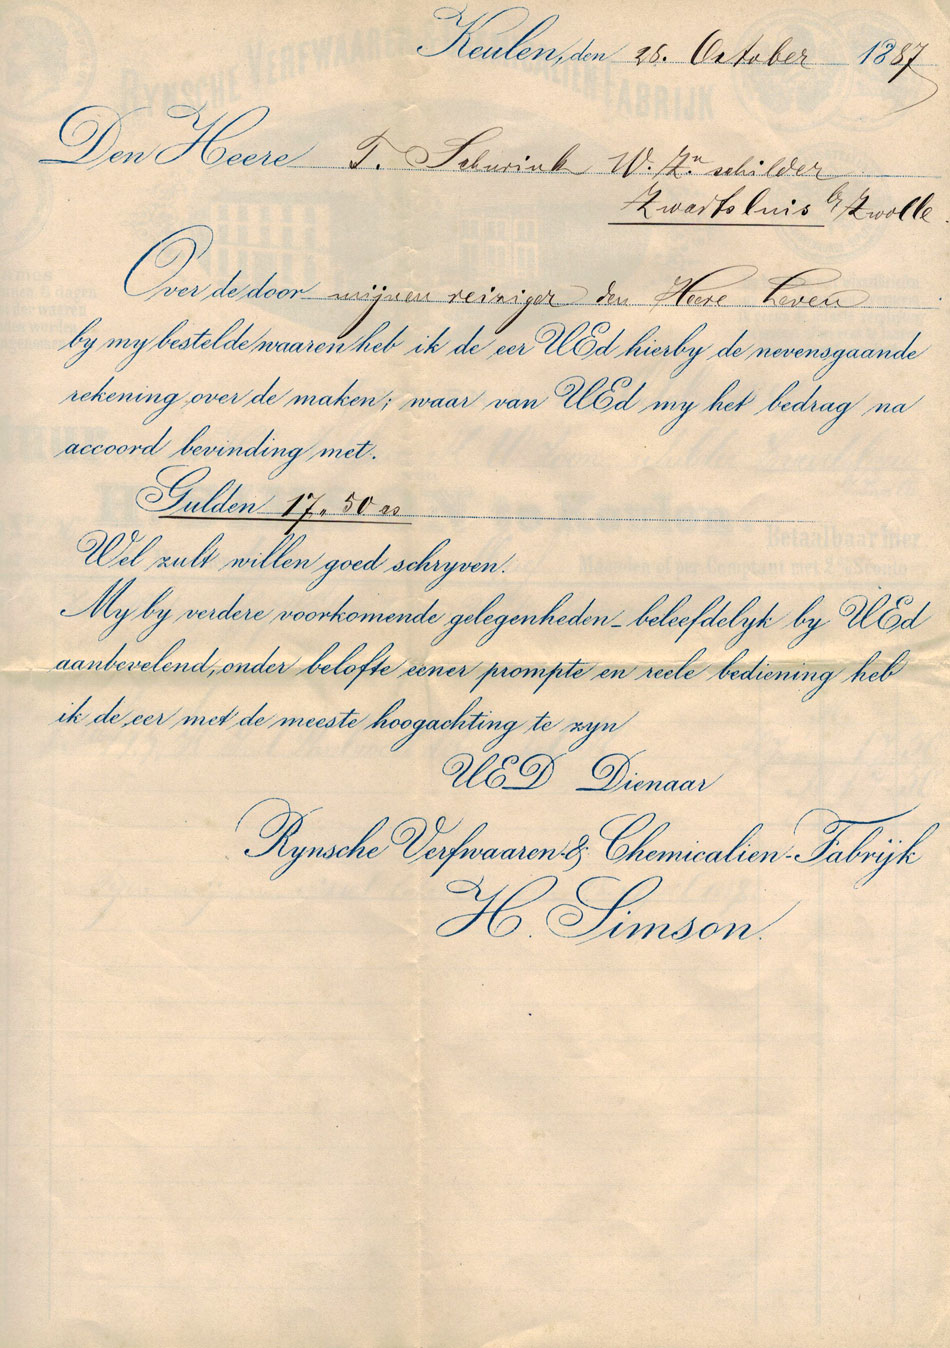 Keulen, den 28. October 1887
Den Heere T. Schurink W. Zn schilder
Zwartsluis by Zwolle.
Over de door mijnen reiziger den Heere Leven
by my bestelde waaren heb ik de eer UEd hierby de nevensgaande
rekening over de maken; waar van UEd my het bedrag na
accoord bevinding met.
Gulden 17,50 as
Wel zult willen goed schryven.
My by verdere voorkomende gelegenheden_ beleefdelyk by UEd
aanbevelend, onder belofte eener prompte en reele bediening heb
ik de eer met de meeste hoogachting te zyn
UED Dienaar
Rynsche Verfwaaren & Chemicalien-Fabrijk
H. Simson.